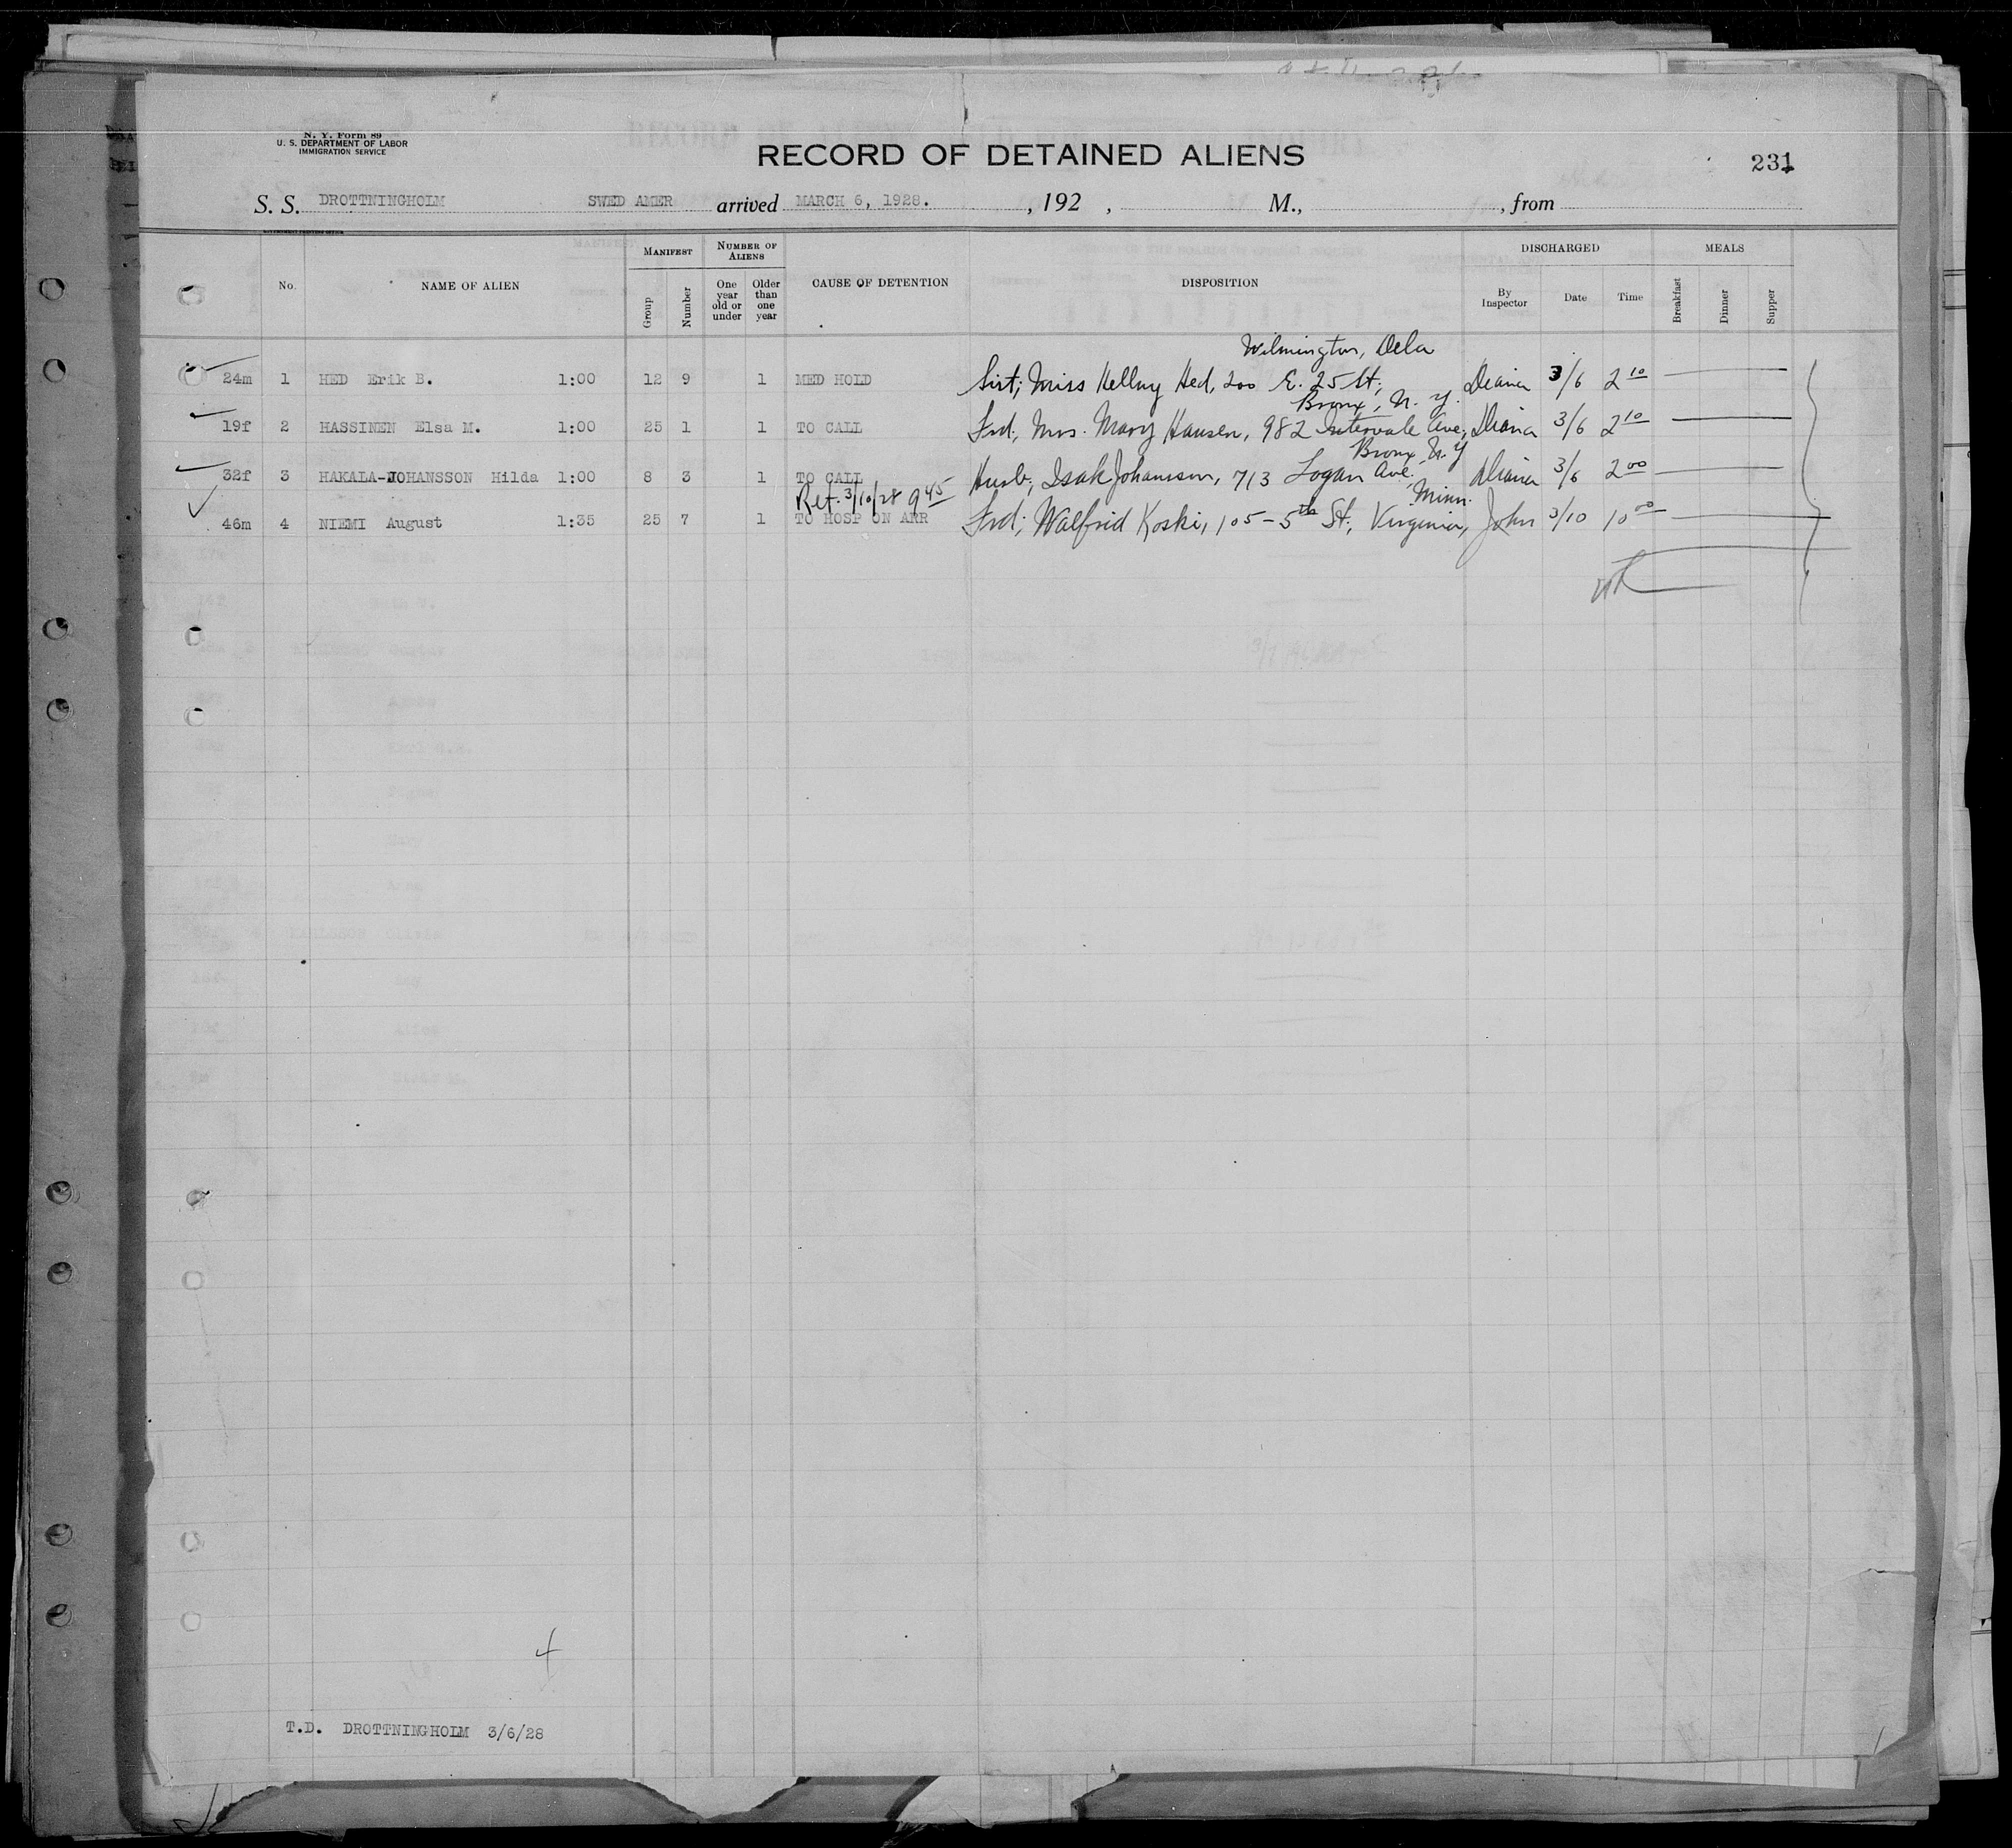 N. Y. Form 89
U. S. DEPARTMENT OF LABOR
IMMIGRATION SERVICE
RECORD OF DETAINED ALIENS
231
S. S. DROTTNINGHOLM SWED AMER arrived MARCH 6, 1928. , 192 , M., , from
GOVERNMENT PRINTING OFFICE
No. NAME OF ALIEN MANIFEST Group Number NUMBER OF ALIENS One year old or under Older than one year CAUSE OF DETENTION DISPOSITION DISCHARGED By Inspector Date Time MEALS Breakfast Dinner Supper
Wilmington, Dela
24m 1 HED Erik B. 1:00 12 9 1 MED HOLD Sist; Miss Hellny Hed, 200 E. 25 St; Diana 3/6 2 10
Bronx, N. Y.
19f 2 HASSINEN Elsa M. 1:00 25 1 1 TO CALL Frd, Mrs. Mary Hansen, 982 Intervale Ave; Diana 3/6 2 10
Bronx N.Y
32f 3 HAKALA-JOHANSSON Hilda 1:00 8 3 1 TO CALL Husb; Isak Johansson, 713 Logan Ave. Diana 3/6 2 00
Ret. 3/10/28 9 45 Minn.
46m 4 NIEMI August 1:35 25 7 1 TO HOSP ON ARR Frd; Walfrid Koski, 105 - 5th St; Virginia, John 3/10 10 00
4
T.D. DROTTNINGHOLM 3/6/28